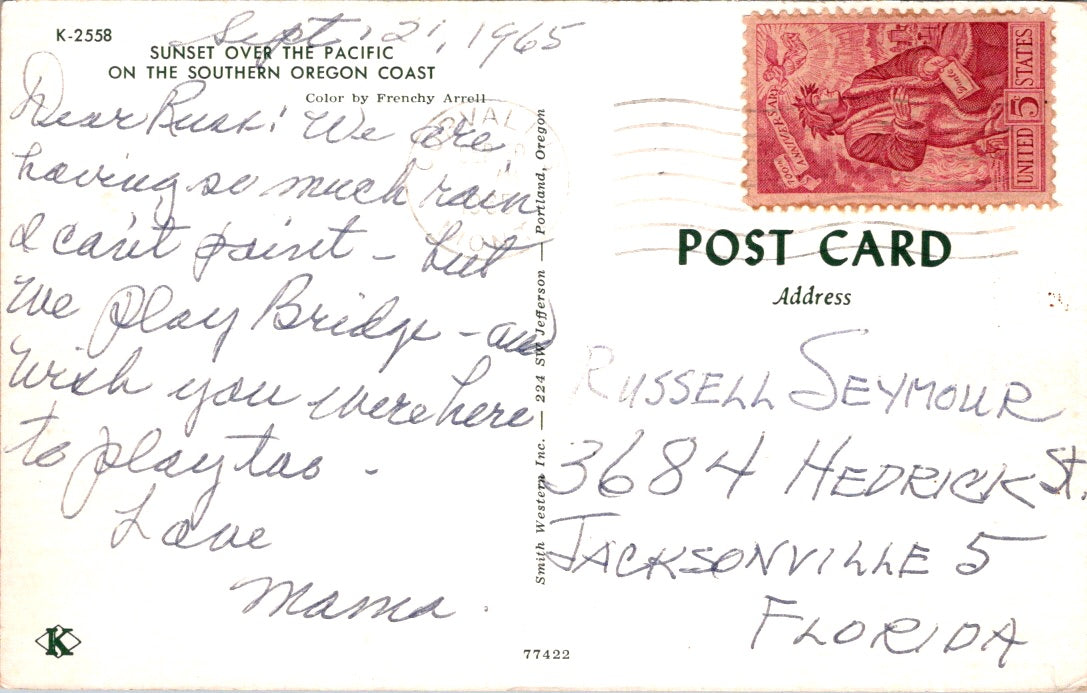 K-2558
Sept. 21, 1965
SUNSET OVER THE PACIFIC
ON THE SOUTHERN OREGON COAST
Color by Frenchy Arrell
Dear Russ: We are
having so much rain
I can't paint - but
We play Bridge - and
Wish you were here
to play too -
Love
Mama.
K
77422
Smith Western Inc. — 224 SW Jefferson — Portland, Oregon
700th ANNIVERSARY
Dante
UNITED 5¢ STATES
POST CARD
Address
RUSSELL SEYMOUR
3684 HEDRICK St.
JACKSONVILLE 5
FLORIDA